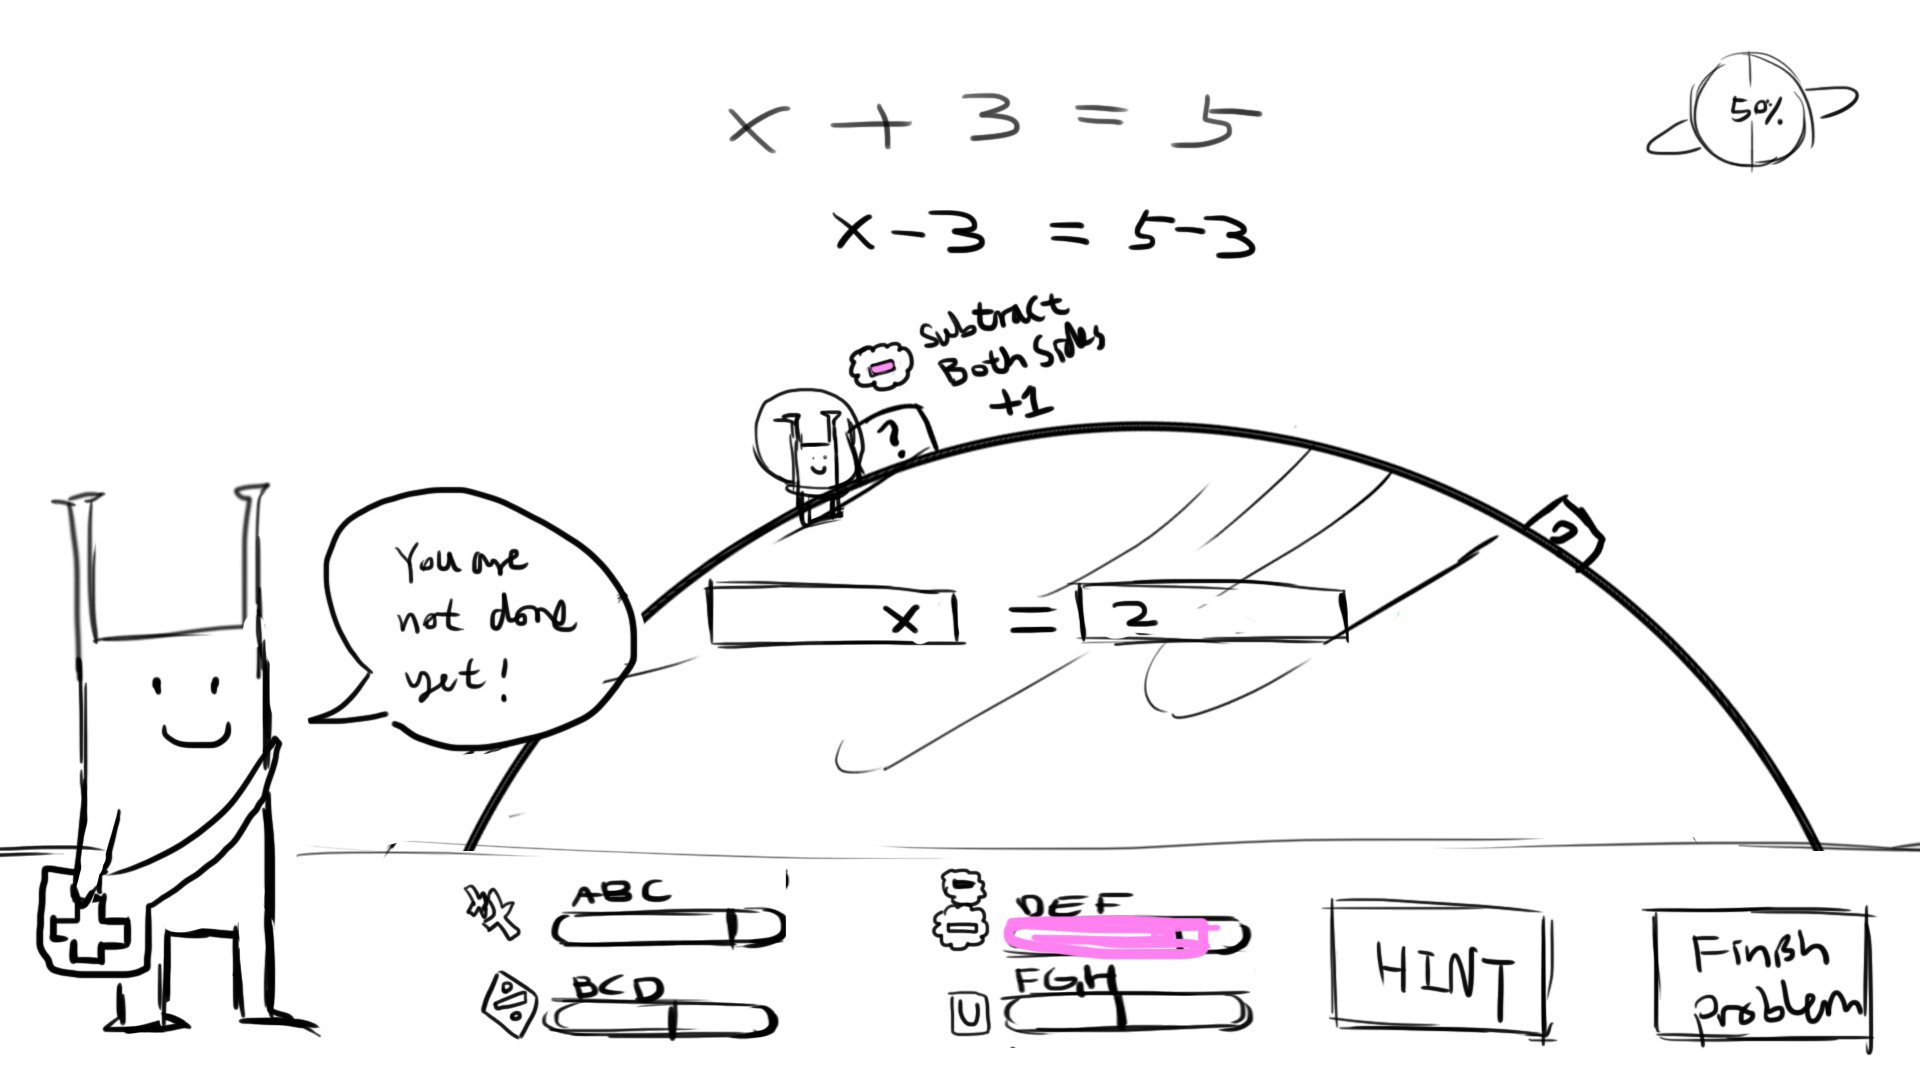 x + 3 = 5
50%
x - 3 = 5 - 3
Subtract
Both Sides
+1
?
?
You are
not done
yet!
x = 2
ABC
DEF
BCD
FGH
U
HINT
Finish
problem